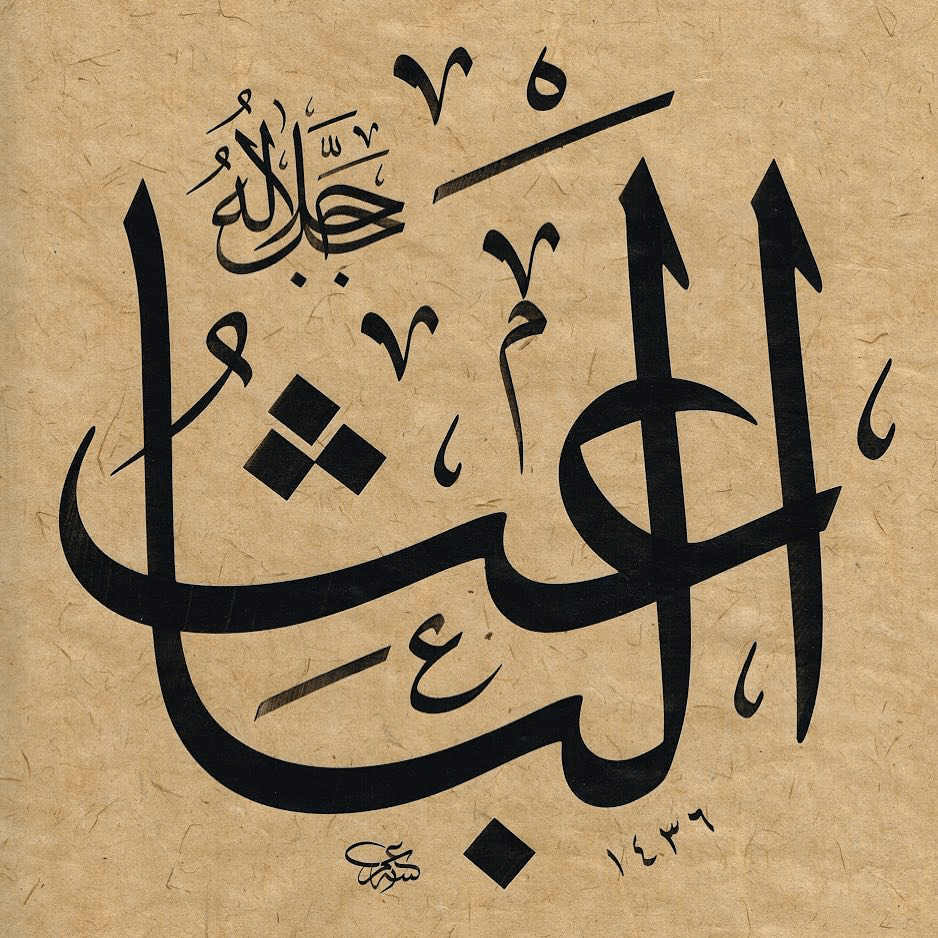 الباعث
جل جلاله
١٤٣٦